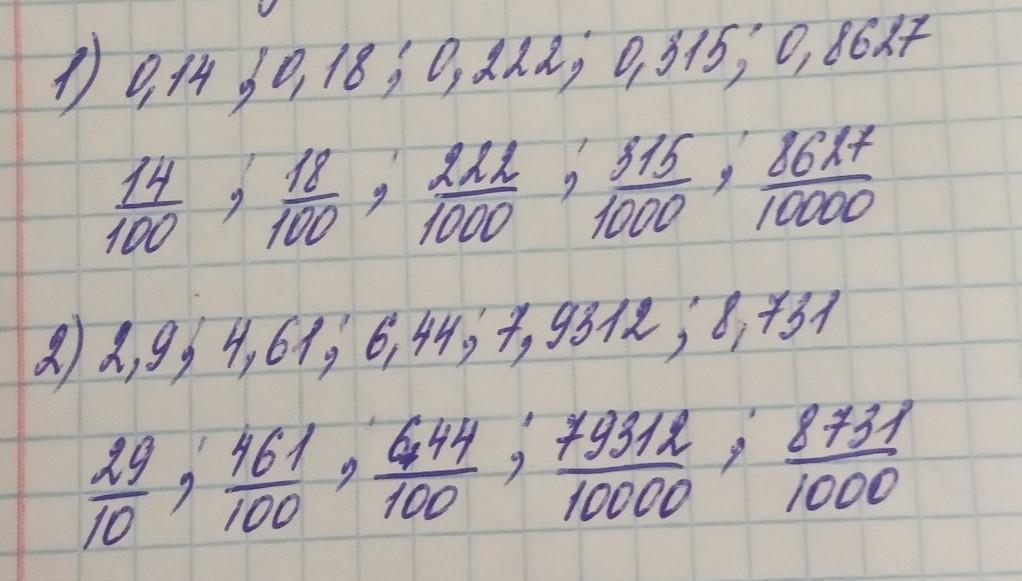 1) 0,14 ; 0,18 ; 0,222 ; 0,315 ; 0,8627
14/100 ; 18/100 ; 222/1000 ; 315/1000 ; 8627/10000
2) 2,9 ; 4,61 ; 6,44 ; 7,9312 ; 8,731
29/10 ; 461/100 ; 644/100 ; 79312/10000 ; 8731/1000